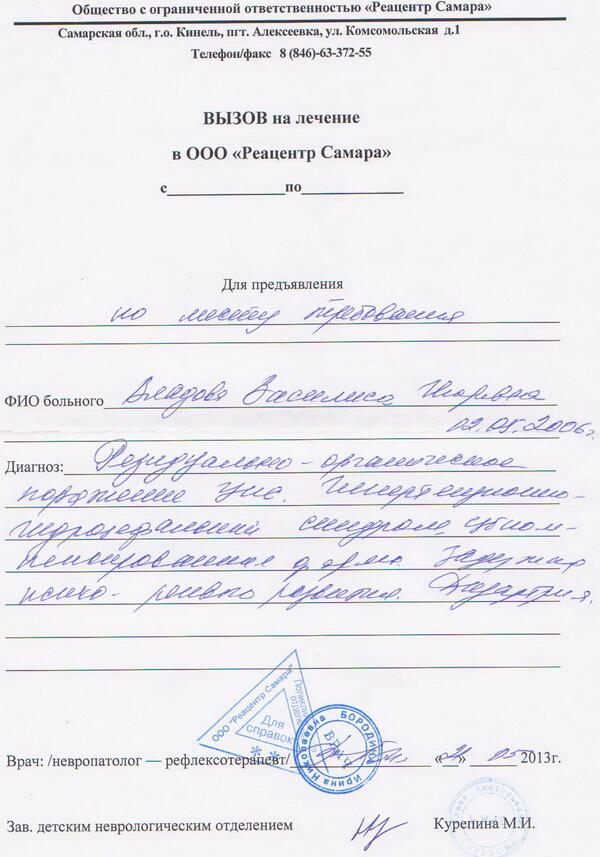 Общество с ограниченной ответственностью «Реацентр Самара»
Самарская обл., г.о. Кинель, пгт. Алексеевка, ул. Комсомольская д.1
Телефон/факс 8 (846)-63-372-55
ВЫЗОВ на лечение
в ООО «Реацентр Самара»
с по
Для предъявления
по месту требования
ФИО больного Василиса Игоревна
02.05.2006г.
Диагноз: Резидуально-органическое
поражение ЦНС. Гипертензионно-
гидроцефальный синдром, субком-
пенсированная форма. Задержка
психо-речевого развития. Дизартрия.
ООО "Реацентр Самара"
Для
справок
БОРОДИНА
Ирина Николаевна
ВРАЧ
Врач: /невропатолог — рефлексотерапевт/ «21» 05 2013г.
Зав. детским неврологическим отделением Курепина М.И.